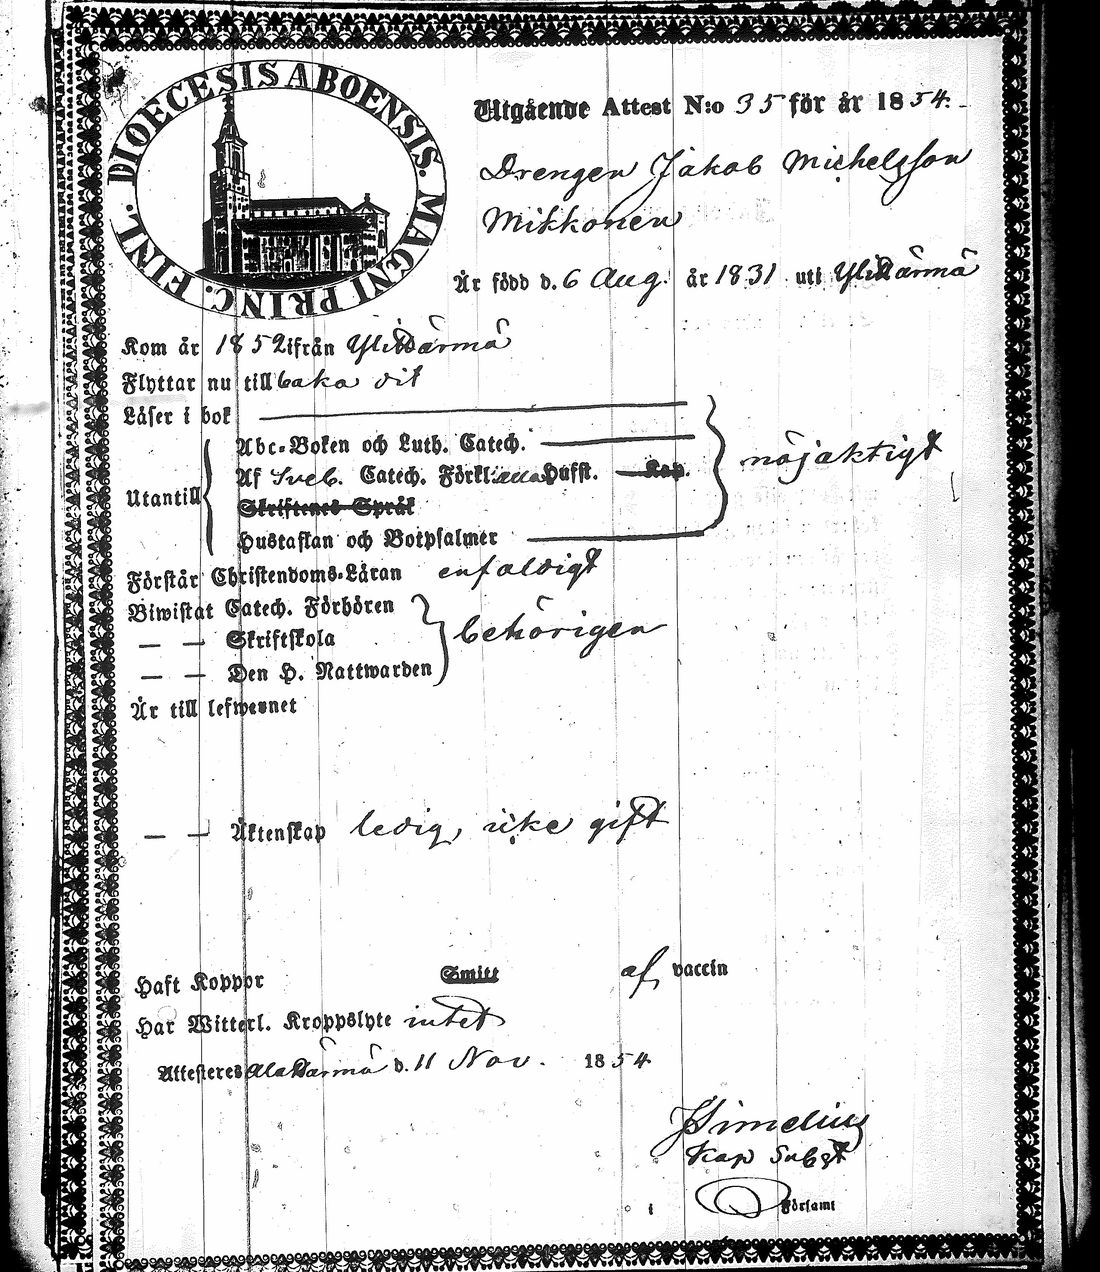 DIOECESIS ABOENSIS. MAGNI PRINC. FINL.
Utgående Attest N:o 35 för år 1854.
Drengen Jakob Michelsson
Mikkonen
Är född d. 6 Aug. år 1831 uti Ylihärmä
Kom år 1852 ifrån Ylihärmä
Flyttar nu till baka dit
Läser i bok
Abc-Boken och Luth. Catech.
Utantill Af Sveb. Catech. Förkl. Hufst. Kap. nöjaktigt
Skriftenes Språk
Hustaflan och Botpsalmer
Förstår Christendoms-Läran enfaldigt
Biwistat Catech. Förhören
— — Skriftskola behörigen
— — Den H. Nattwarden
Är till lefwernet
— — Äktenskap ledig, icke gift
Haft Koppor Smitt af vaccin
Har Witterl. Kroppslyte intet
Attesteras Alahärmä d. 11 Nov. 1854
Simelius
Kap Subst
i Församl